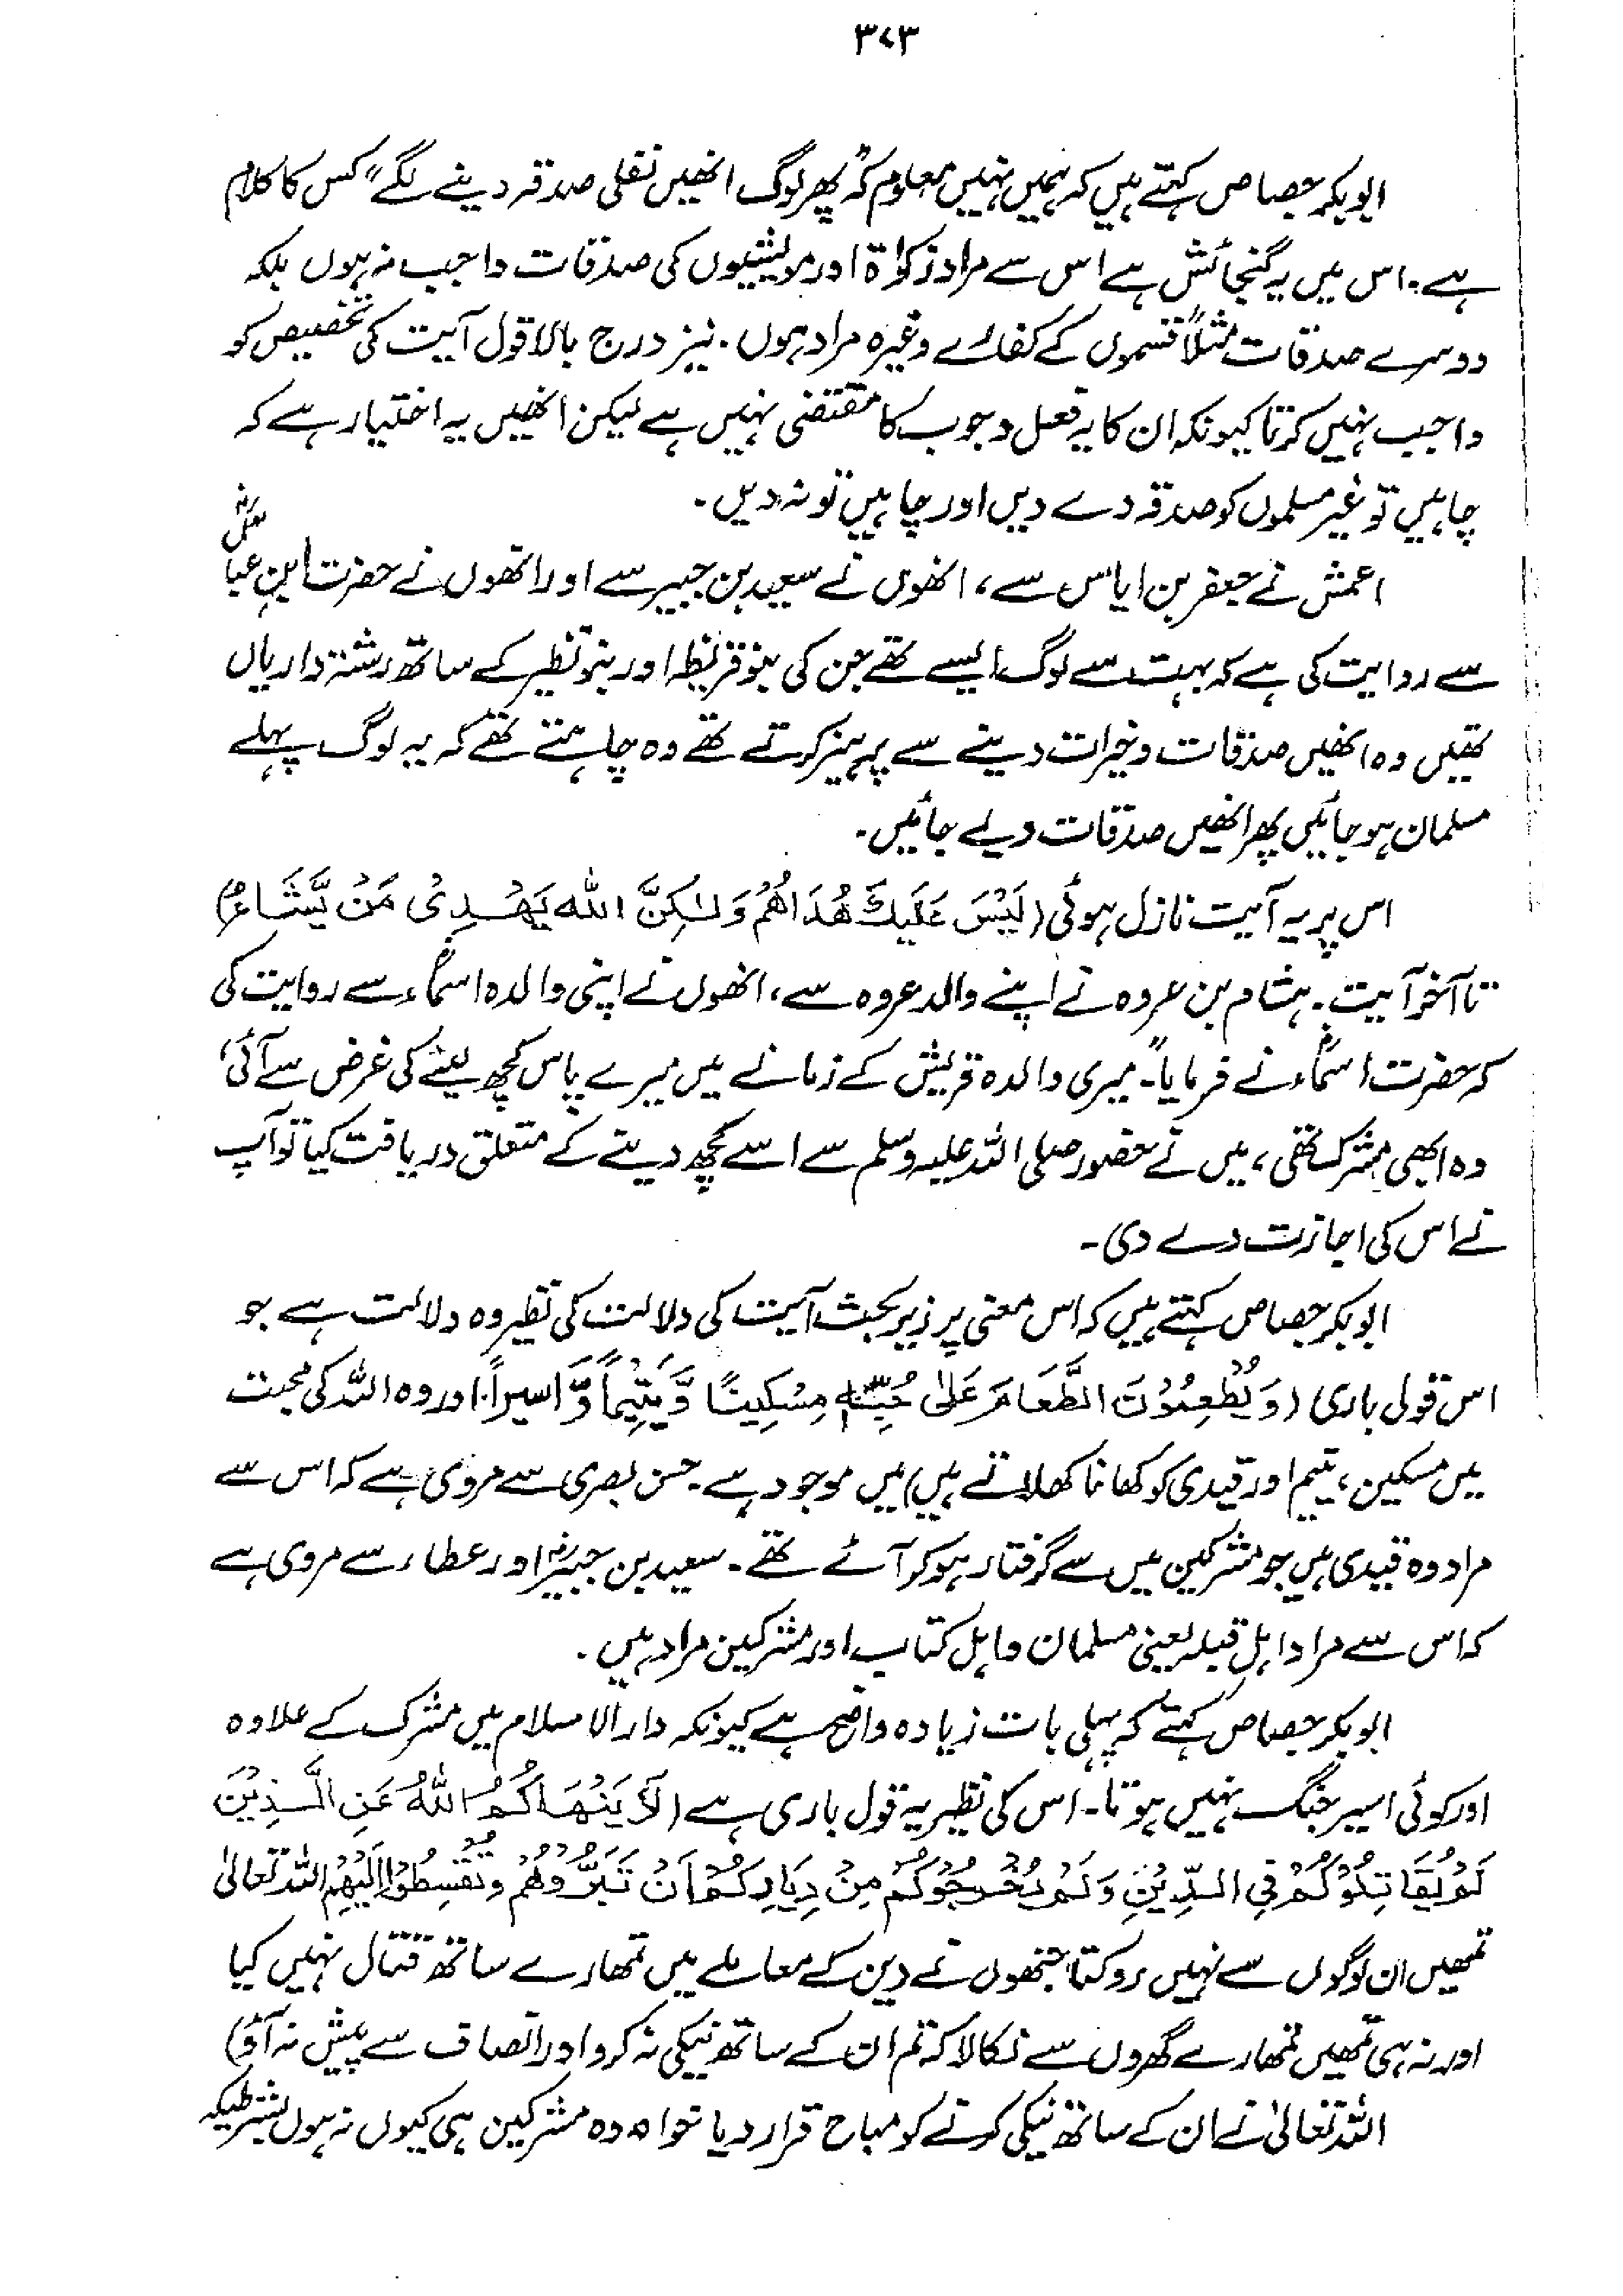 ۳۷۳
ابوبکر جصاص کہتے ہیں کہ ہمیں نہیں معلوم کہ "پھر لوگ انھیں نفلی صدقہ دینے لگے" کس کا کلام
ہے۔ اس میں یہ گنجائش ہے اس سے مراد زکوٰۃ اور مویشیوں کی صدقات واجب نہ ہوں بلکہ
دوسرے صدقات مثلاً قسموں کے کفارے وغیرہ مراد ہوں۔ نیز درج بالا قول آیت کی تخصیص کو
واجب نہیں کرتا کیونکہ ان کا یہ فعل وجوب کا مقتضی نہیں ہے لیکن انھیں یہ اختیار ہے کہ
چاہیں تو غیر مسلموں کو صدقہ دے دیں اور چاہیں تو نہ دیں۔
اعمش نے جعفر بن ایاس سے، انھوں نے سعید بن جبیر سے اور انھوں نے حضرت ابن عباسؓ
سے روایت کی ہے کہ بہت سے لوگ ایسے تھے جن کی بنو قریظہ اور بنو نظیر کے ساتھ رشتہ داریاں
تھیں وہ انھیں صدقات و خیرات دینے سے پرہیز کرتے تھے وہ چاہتے تھے کہ یہ لوگ پہلے
مسلمان ہو جائیں پھر انھیں صدقات دیے جائیں۔
اس پر یہ آیت نازل ہوئی (لَیْسَ عَلَیْكَ هُدَاهُمْ وَلٰكِنَّ اللّٰه یَهْدِیْ مَنْ یَّشَاءُ)
تا آخر آیت۔ ہشام بن عروہ نے اپنے والد عروہ سے، انھوں نے اپنی والدہ اسماؓء سے روایت کی
کہ حضرت اسماؓء نے فرمایا "۔ میری والدہ قریش کے زمانے میں میرے پاس کچھ لینے کی غرض سے آئی،
وہ ابھی مشرک تھی، میں نے حضور صلی اللہ علیہ وسلم سے اسے کچھ دینے کے متعلق دریافت کیا تو آپ
نے اس کی اجازت دے دی۔
ابوبکر جصاص کہتے ہیں کہ اس معنی پر زیر بحث آیت کی دلالت کی نظیر وہ دلالت ہے جو
اس قول باری (وَیُطْعِمُوْنَ الطَّعَامَ عَلٰی حُبِّهٖ مِسْكِینًا وَّیَتِیْماً وَّاسیراً۔ اور وہ اللہ کی محبت
میں مسکین، یتیم اور قیدی کو کھانا کھلاتے ہیں) میں موجود ہے۔ حسن بصری سے مروی ہے کہ اس سے
مراد وہ قیدی ہیں جو مشرکین میں سے گرفتار ہو کر آئے تھے۔ سعید بن جبیرؓ اور عطاء سے مروی ہے
کہ اس سے مراد اہل قبلہ یعنی مسلمان و اہل کتاب اور مشرکین مراد ہیں۔
ابوبکر جصاص کہتے کہ پہلی بات زیادہ واضح ہے کیونکہ دارالاسلام میں مشرک کے علاوہ
اور کوئی اسیر جنگ نہیں ہوتا۔ اس کی نظیر یہ قول باری ہے (لَا یَنْهَاكُمُ اللّٰهُ عَنِ الَّذِیْنَ
لَمْ یُقَاتِلُوْكُمْ فِی الدِّیْنِ وَلَمْ یُخْرِجُوْكُمْ مِنْ دِیَارِكُمْ اَنْ تَبَرُّوْهُمْ وَتُقْسِطُوْا اِلَیْهِمْ اللہ تعالیٰ
تمھیں ان لوگوں سے نہیں روکتا جنھوں نے دین کے معاملے میں تمھارے ساتھ قتال نہیں کیا
اور نہ ہی تمھیں تمھارے گھروں سے نکالا کہ تم ان کے ساتھ نیکی نہ کرو اور انصاف سے پیش نہ آؤ)
اللہ تعالیٰ نے ان کے ساتھ نیکی کرنے کو مباح قرار دیا خواہ وہ مشرکین ہی کیوں نہ ہوں بشرطیکہ